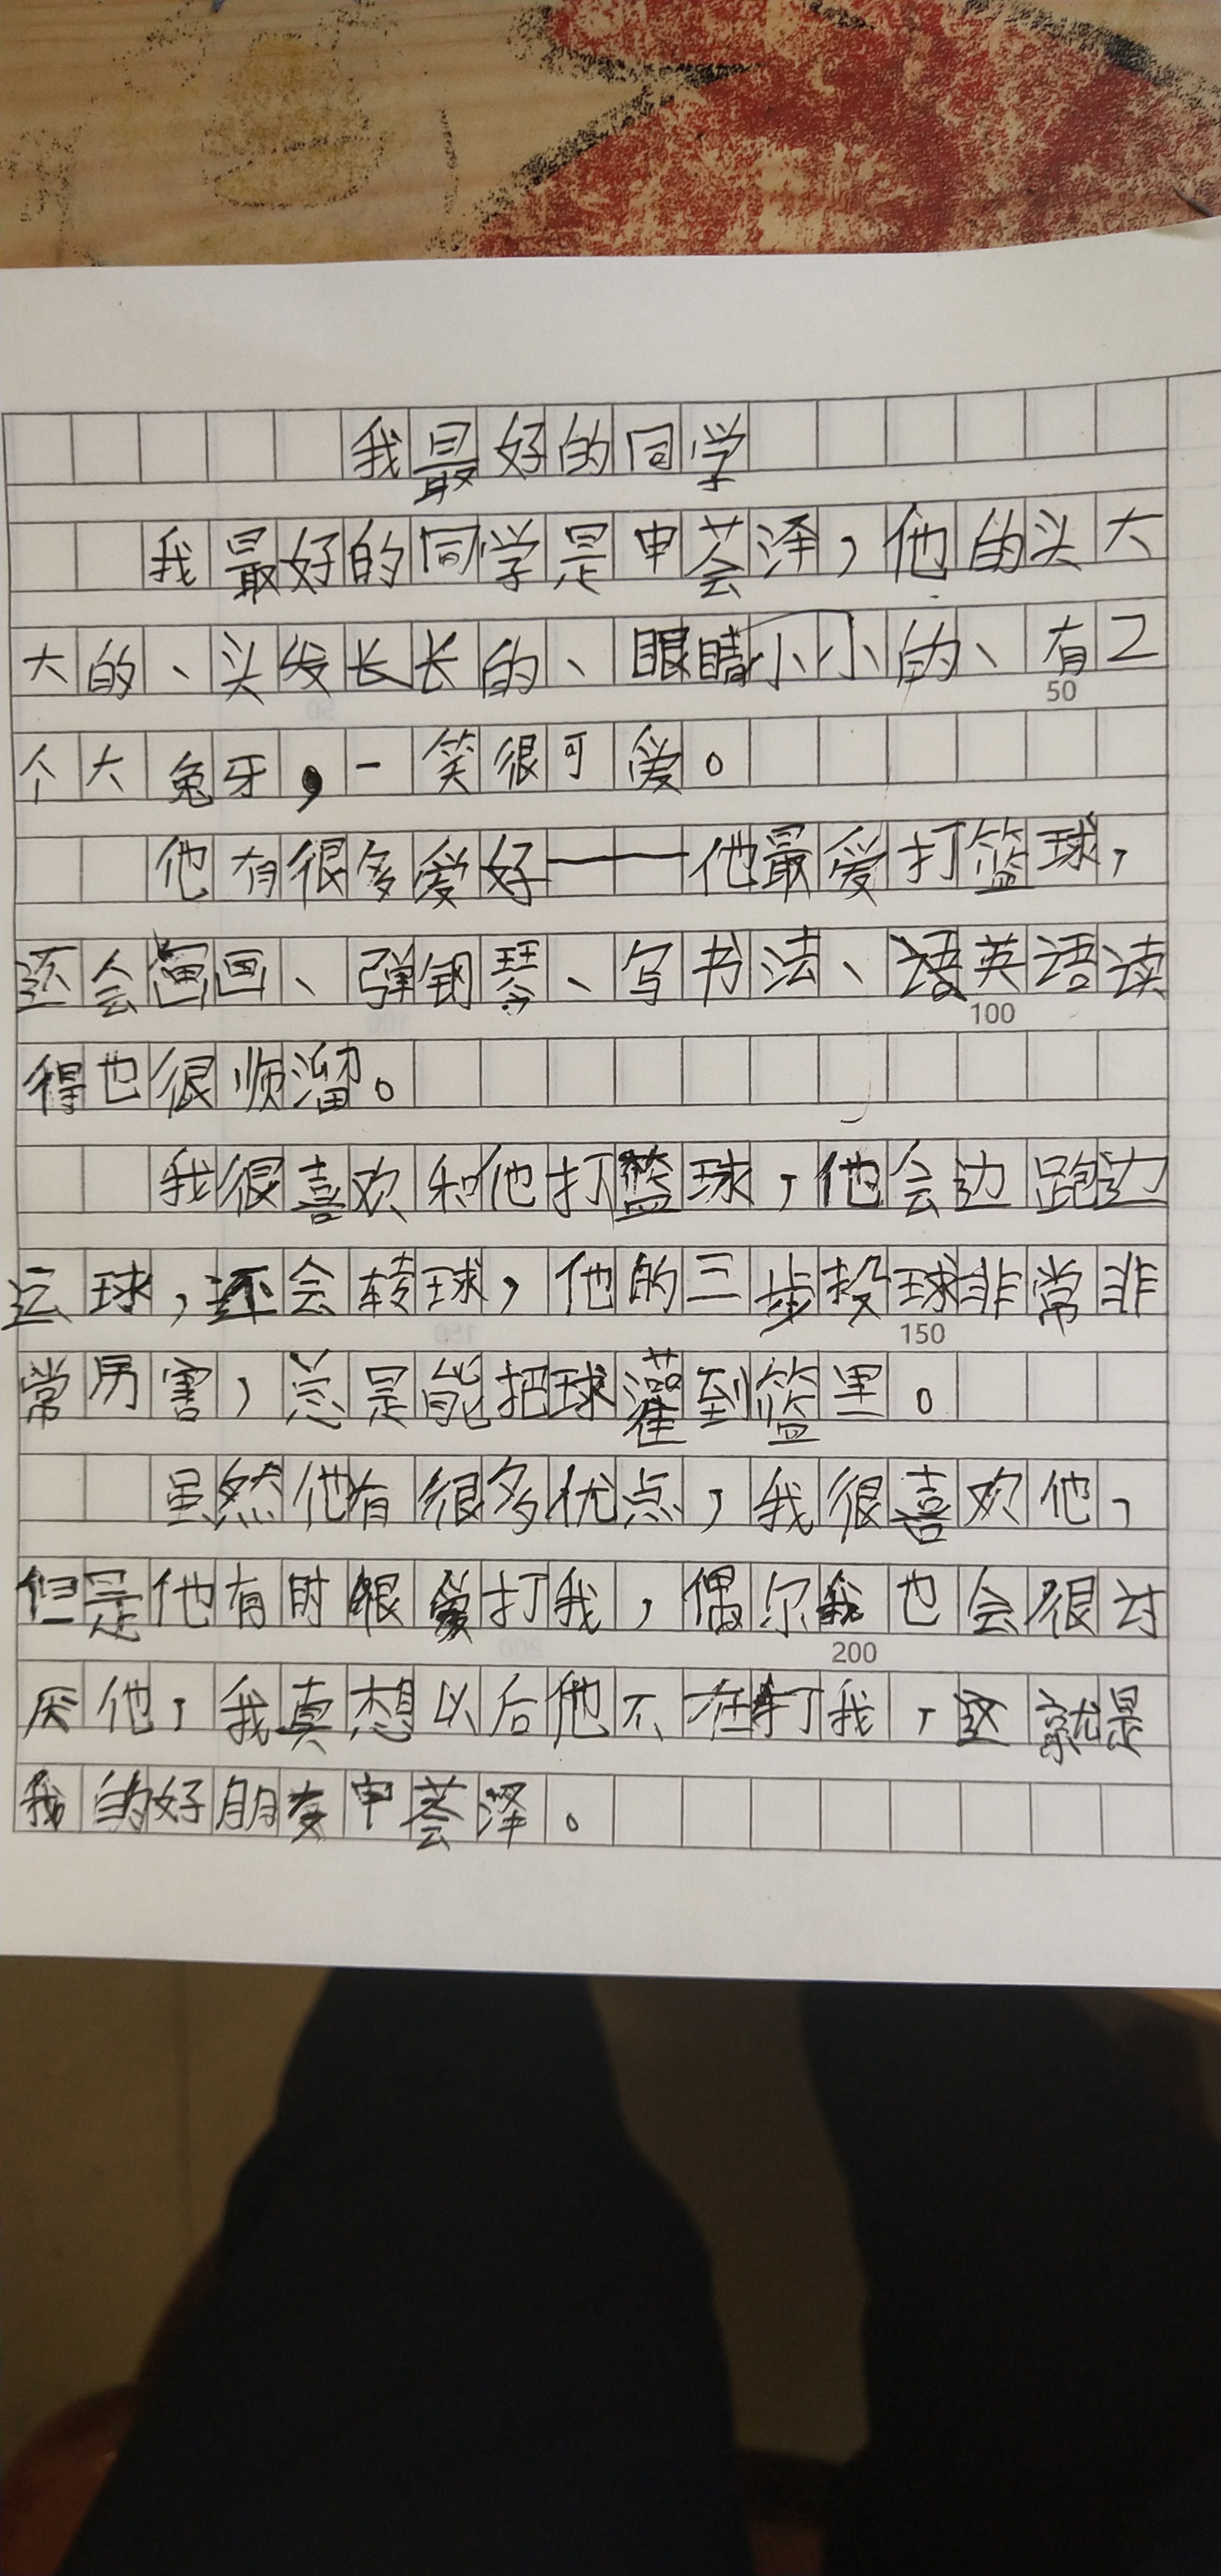 我最好的同学
我最好的同学是申荟泽，他的头大
大的、头发长长的、眼睛小小的、有2
50
个大兔牙，一笑很可爱。
他有很多爱好——他最爱打篮球，
还会画画、弹钢琴、写书法、英语读
100
得也很顺溜。
我很喜欢和他打篮球，他会边跑边
运球，还会转球，他的三步投球非常非
150
常厉害，总是能把球灌到篮里。
虽然他有很多优点，我很喜欢他，
但是他有时很爱打我，偶尔我也会很讨
200
厌他，我真想以后他不在打我，这就是
我的好朋友申荟泽。